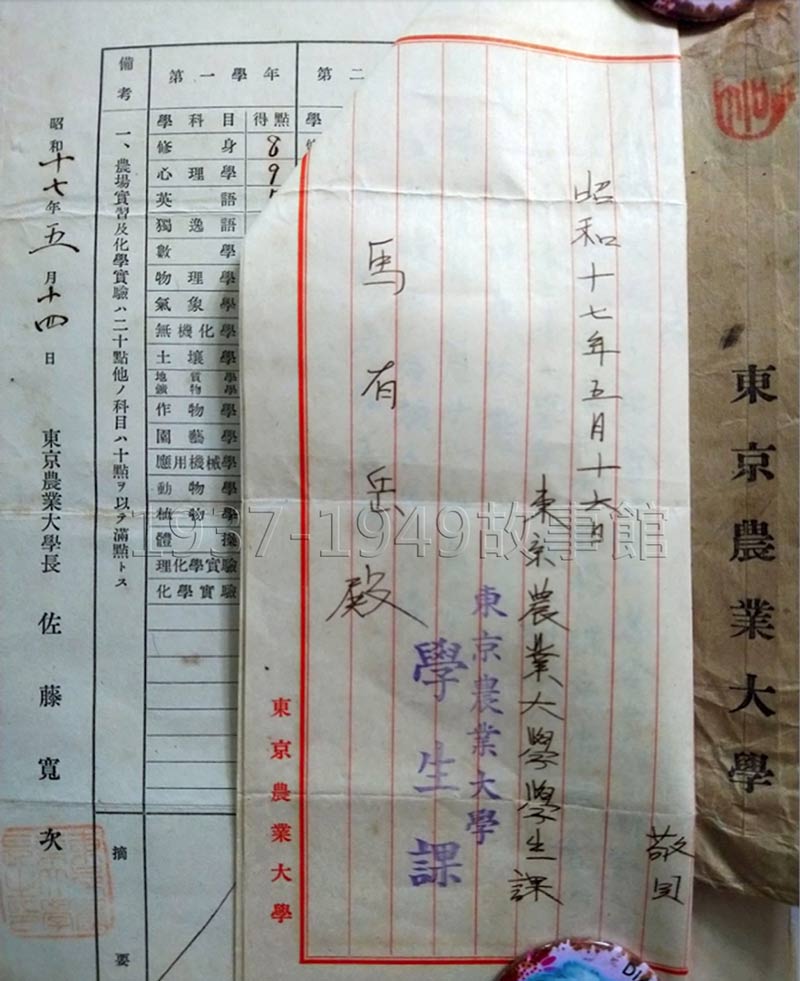 東京農業大學
敬具
昭和十七年五月十六日
東京農業大學學生課
東京農業大學
學生課
馬有岳殿
東京農業大學
第一學年
第二
學科目
得點
學
修身
8
心理學
9
英語
獨逸語
數學
物理學
氣象學
無機化學
土壤學
地質學
鑛物學
作物學
園藝學
應用機械學
動物學
植物學
體操
理化學實驗
化學實驗
備考
一、農場實習及化學實驗ハ二十點他ノ科目ハ十點ヲ以テ滿點トス
摘要
昭和十七年五月十四日
東京農業大學長 佐藤寬次
1937-1949故事館